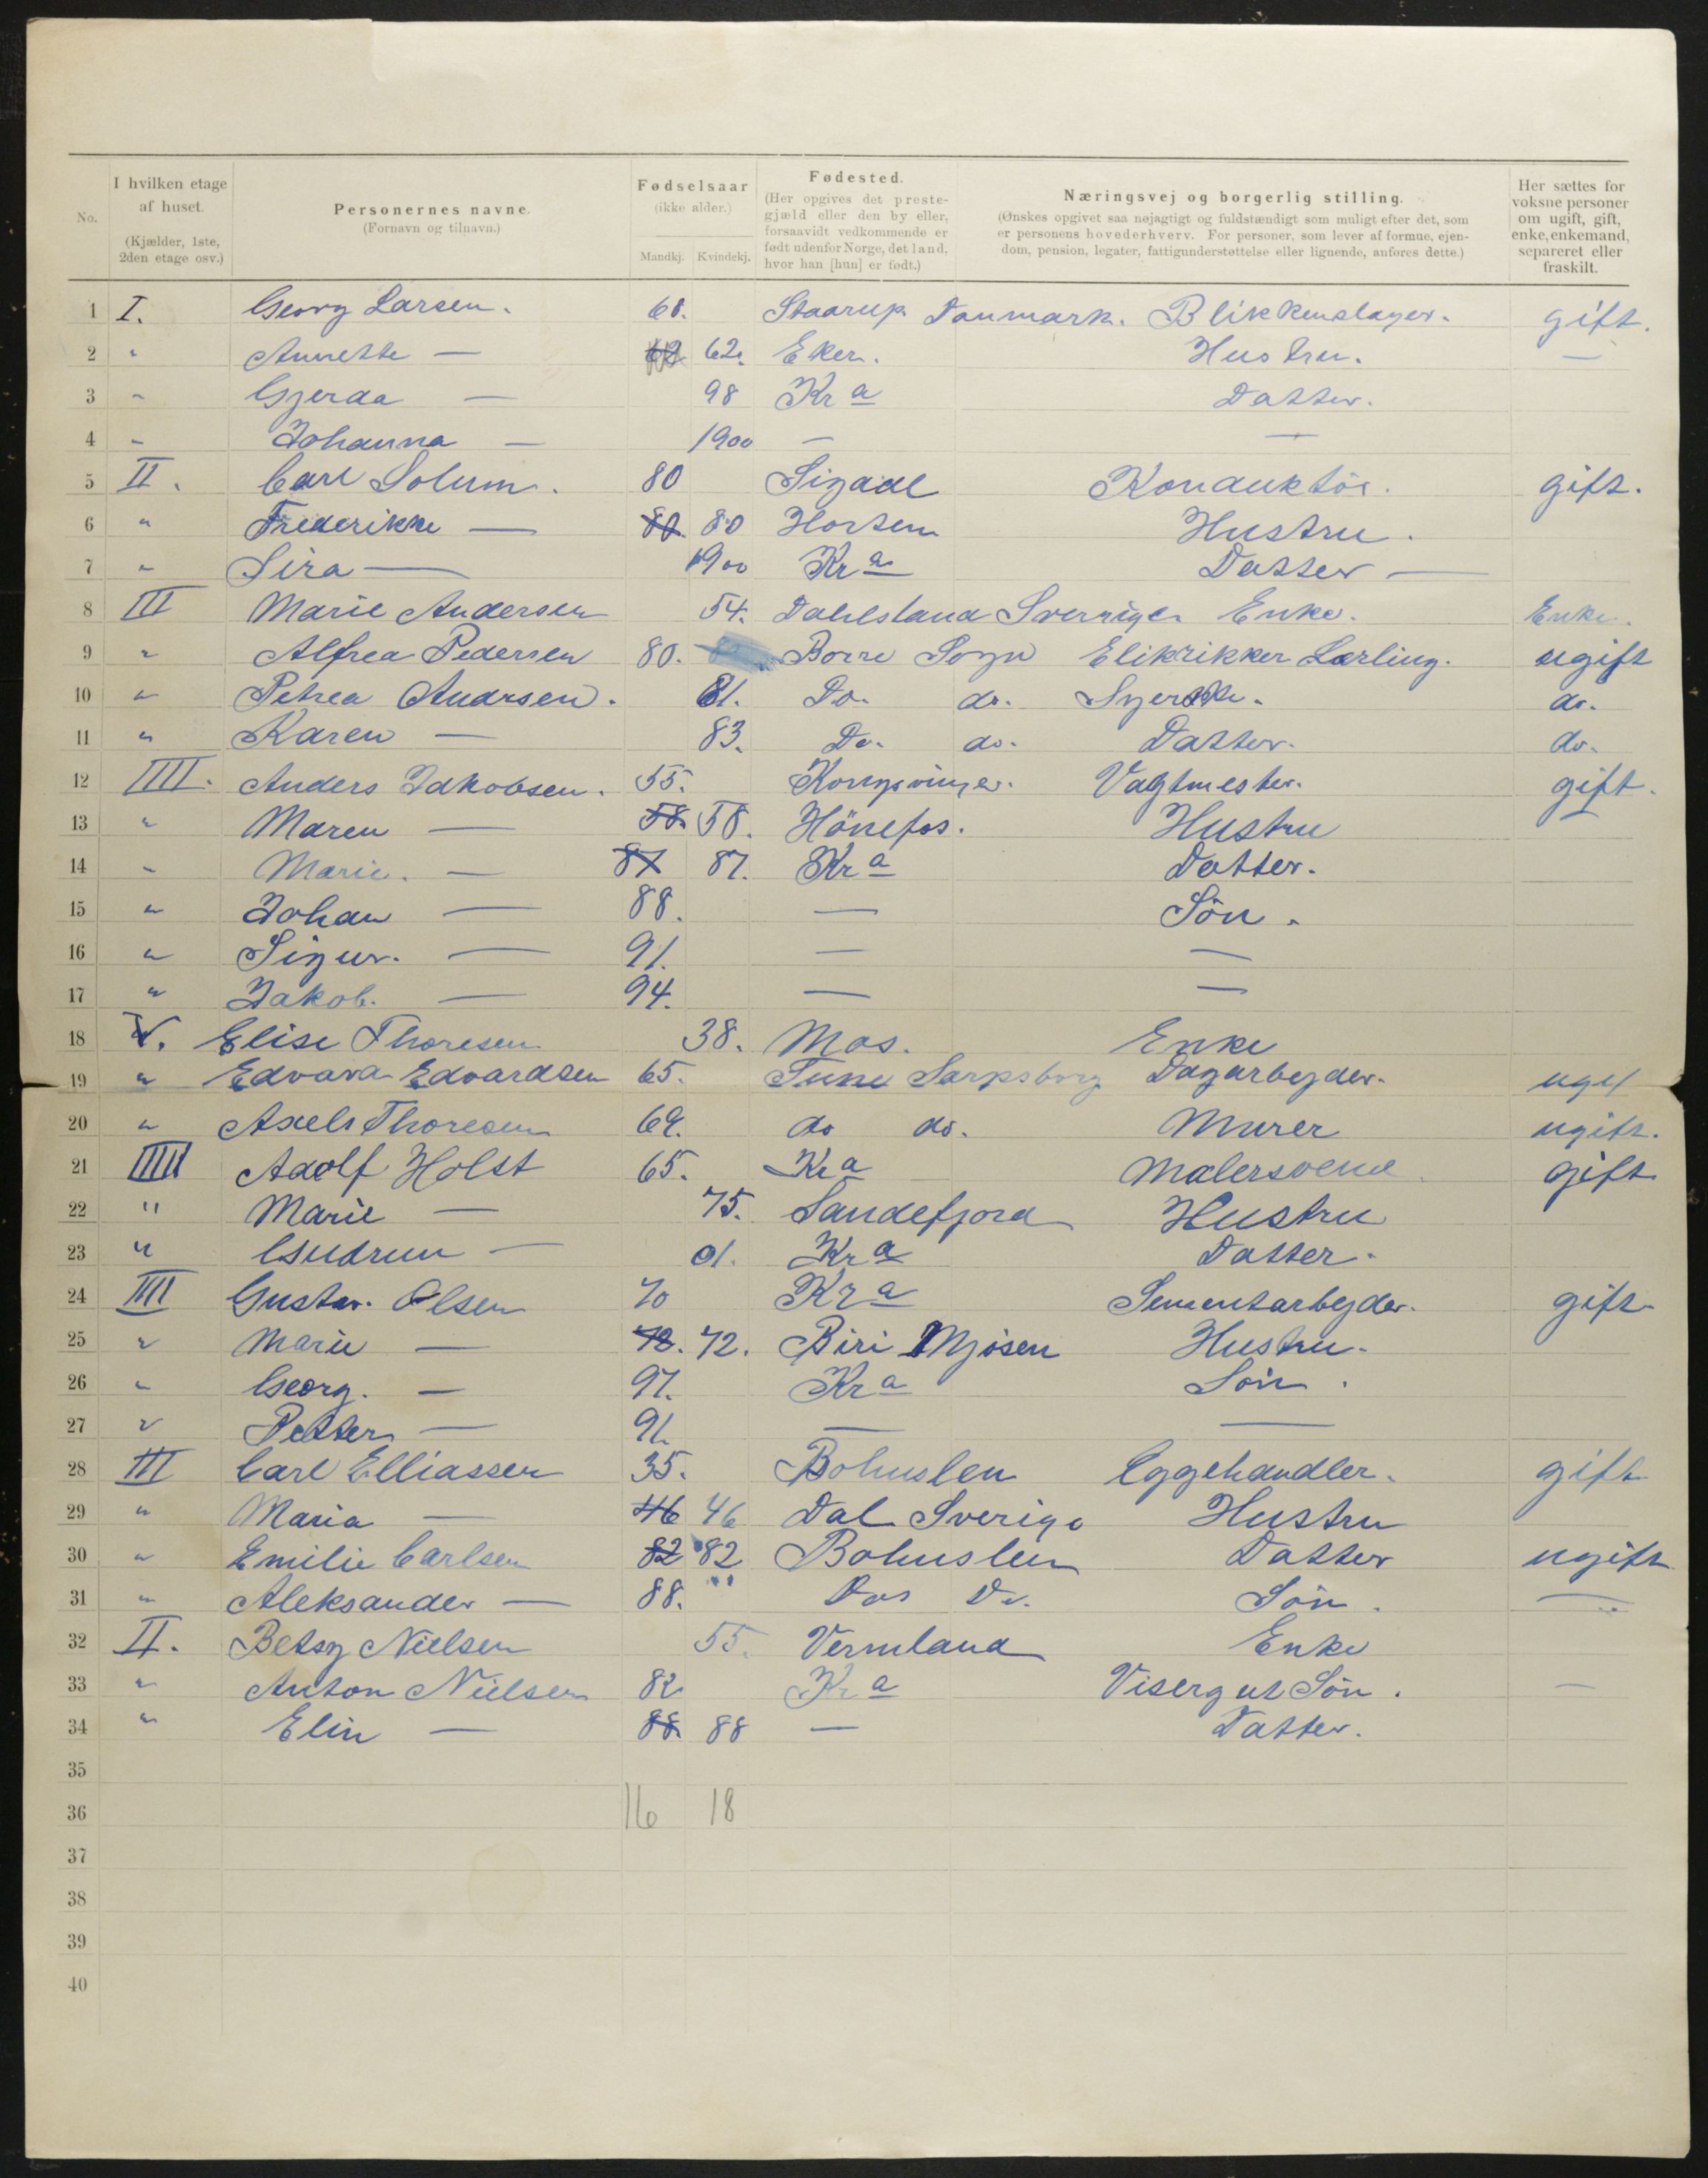 No. I hvilken etage af huset. (Kjælder, 1ste, 2den etage osv.) Personernes navne. (Fornavn og tilnavn.) Fødselsaar (ikke alder.) Mandkj. Kvindekj. Fødested. (Her opgives det prestegjæld eller den by eller, forsaavidt vedkommende er født udenfor Norge, det land, hvor han [hun] er født.) Næringsvej og borgerlig stilling. (Ønskes opgivet saa nøjagtigt og fuldstændigt som muligt efter det, som er personens hovederhverv. For personer, som lever af formue, ejendom, pension, legater, fattigunderstøttelse eller lignende, anføres dette.) Her sættes for voksne personer om ugift, gift, enke, enkemand, separeret eller fraskilt.
1 I. Georg Larsen. Staarup Danmark. Blikkenslager. gift.
2 " Annette — 62. Eker. Hustru. —
3 " Gjerda — 98 Kra Datter.
4 " Johanna — 1900 — —
5 II. Carl Solum. 80 Sigdal Konduktør. gift.
6 " Frederikke — 80. 80 Horten Hustru.
7 " Sira — 1900 Kra Datter —
8 III Marie Andersen 54. Dahlsland Sverriges Enke. Enke.
9 " Alfred Pedersen 80. Borre Sogn Elikrikker Lærling. ugift
10 " Petrea Andrsen. 81. Do. do. Syerske. do.
11 " Karen — 83. Do. do. Datter. do.
12 IIII. Anders Jakobsen. 55. Kongsvinger. Vagtmester. gift.
13 " Maren — 58. 58. Hönefos. Hustru
14 " Marie. — 87 87. Kra Datter.
15 " Johan — 88. — Sön.
16 " Sigur. — 91. — —
17 " Jakob. — 94. — —
18 V. Elise Thoresen 38. Mos. Enke
19 " Edvard Edvardsen 65. Tune Sarpsborg Dagarbeyder. ugif
20 " Axel Thoresen 69. do do. Murer ugift.
21 IIIII Adolf Holst 65. Kra Malersvend gift
22 " Marie — 75. Sandefjord Hustru
23 " Gudrun — 01. Kra Datter.
24 IIII Gustav. Olsen 70 Kra Sementarbeyder. gift
25 " Marie — 72. 72. Biri Mjösen Hustru.
26 " Georg. — 97. Kra Sön.
27 " Petter — 91. — —
28 III Carl Elliassen 35. Bohuslen Eggehandler. gift
29 " Maria — 46 46 Dal Sverige Hustru
30 " Emilie Carlsen 82 82 Bohuslen Datter ugift
31 " Aleksander — 88. " Do. Sön. —
32 II. Betsy Nielsen 55. Vermland Enke
33 " Anton Nielsen 82 Kra Visergut Sön. —
34 " Elin — 88. 88 — Datter.
35
36 16 18
37
38
39
40